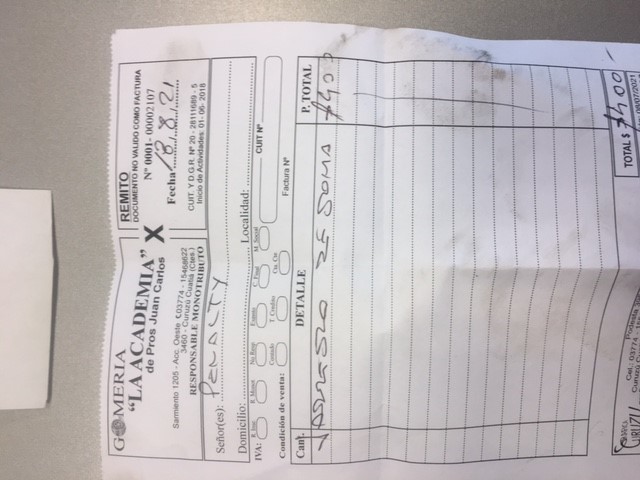 GOMERIA
"LA ACADEMIA"
de Pros Juan Carlos
Sarmiento 1205 - Acc. Oeste 03774 - 15468622
3460 - Curuzú Cuatiá (Ctes.)
RESPONSABLE MONOTRIBUTO
X
REMITO
DOCUMENTO NO VALIDO COMO FACTURA
Nº 0001- 00002107
Fecha 18.8.21
CUIT. Y D.G.R. Nº 20 - 28111689 - 5
Inicio de Actividades: 01 - 06 - 2018
Señor(es): PENALTY
Domicilio: Localidad:
IVA: CUIT Nº
Condición de venta: Contado Cta. Cte. Factura Nº
Cant. DETALLE P. TOTAL
DE GOMA 7400
TOTAL $ 7400